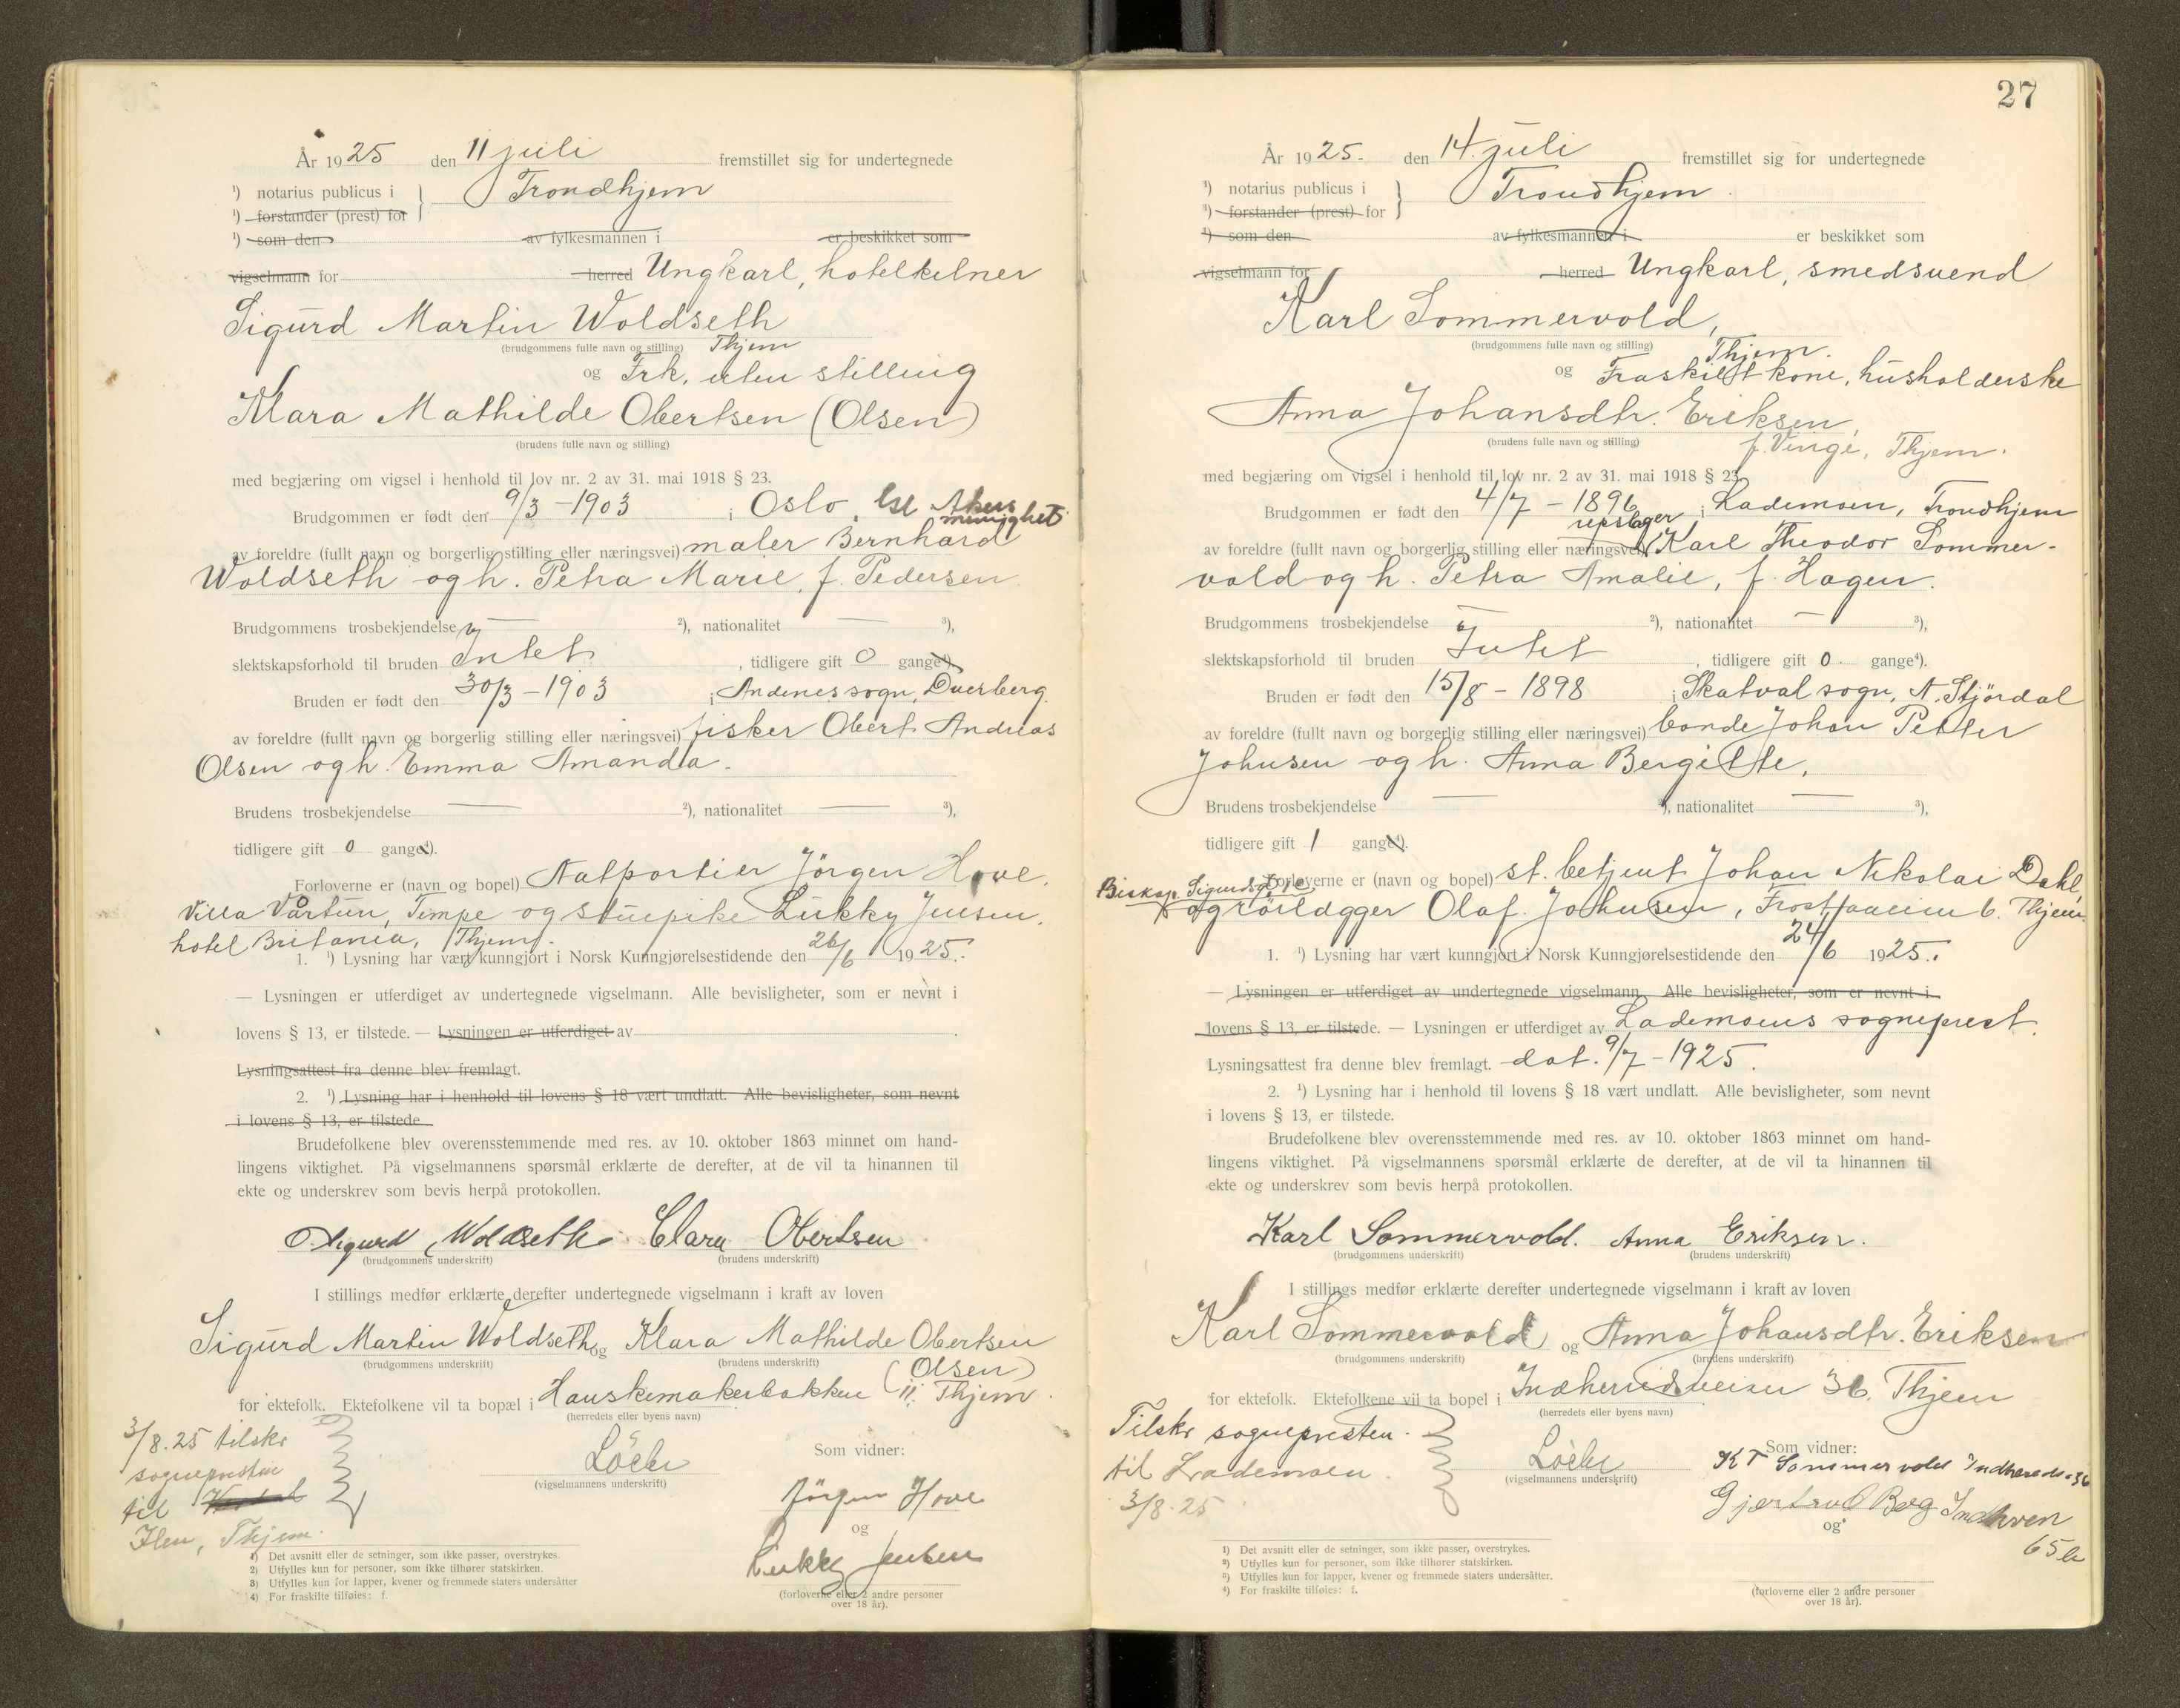 År 1925 den 11 juli fremstillet sig for undertegnede
¹) notarius publicus i } Trondhjem
¹) forstander (prest) for
¹) som den av fylkesmannen i er beskikket som
vigselmann for herred Ungkarl, hotelkelner
Sigurd Martin Woldseth
(brudgommens fulle navn og stilling) Thjem
og Frk. uten stilling
Klara Mathilde Obertsen (Olsen)
(brudens fulle navn og stilling)
med begjæring om vigsel i henhold til lov nr. 2 av 31. mai 1918 § 23.
Brudgommen er født den 9/3 - 1903 i Oslo, Akers
menighet
av foreldre (fullt navn og borgerlig stilling eller næringsvei) maler Bernhard
Woldseth og h. Petra Marie, f. Pedersen
Brudgommens trosbekjendelse — ²), nationalitet — ³),
slektskapsforhold til bruden Intet , tidligere gift 0 gange⁴).
Bruden er født den 30/3 - 1903 i Andenes sogn, Dverberg
av foreldre (fullt navn og borgerlig stilling eller næringsvei) fisker Obert Andreas
Olsen og h. Emma Amanda.
Brudens trosbekjendelse — ²), nationalitet — ³),
tidligere gift 0 gange⁴).
Forloverne er (navn og bopel) Natportier Jörgen Hove,
Villa Vårtun, Tempe og stuepike Lukky Jensen,
hotel Britania, Thjem.
1. ¹) Lysning har vært kunngjort i Norsk Kunngjørelsestidende den 26/6 1925.
— Lysningen er utferdiget av undertegnede vigselmann. Alle bevisligheter, som er nevnt i
lovens § 13, er tilstede. — Lysningen er utferdiget av
Lysningsattest fra denne blev fremlagt.
2. ¹) Lysning har i henhold til lovens § 18 vært undlatt. Alle bevisligheter, som nevnt
i lovens § 13, er tilstede.
Brudefolkene blev overensstemmende med res. av 10. oktober 1863 minnet om hand-
lingens viktighet. På vigselmannens spørsmål erklærte de derefter, at de vil ta hinannen til
ekte og underskrev som bevis herpå protokollen.
Sigurd Woldseth Clara Obertsen
(brudgommens underskrift) (brudens underskrift)
I stillings medfør erklærte derefter undertegnede vigselmann i kraft av loven
Sigurd Martin Woldseth og Klara Mathilde Obertsen
(brudgommens underskrift) (brudens underskrift) (Olsen)
for ektefolk. Ektefolkene vil ta bopæl i Hanskemakerbakken 11. Thjem.
(herredets eller byens navn)
3/8.25 tilskr
sognepresten
til
Ilen, Thjem.
Löchen
(vigselmannens underskrift)
Som vidner:
Jörgen Hove
og
Lukky Jensen
(forloverne eller 2 andre personer
over 18 år).
1) Det avsnitt eller de setninger, som ikke passer, overstrykes.
2) Utfylles kun for personer, som ikke tilhører statskirken.
3) Utfylles kun for lapper, kvener og fremmede staters undersåtter
4) For fraskilte tilføies: f.
27
År 1925. den 14. juli fremstillet sig for undertegnede
¹) notarius publicus i } Trondhjem
¹) forstander (prest) for
¹) som den av fylkesmannen i er beskikket som
vigselmann for herred Ungkarl, smedsvend
Karl Sommervold,
(brudgommens fulle navn og stilling) Thjem.
og Fraskilt kone, husholderske
Anna Johansdtr. Eriksen,
(brudens fulle navn og stilling) f. Vinge, Thjem.
med begjæring om vigsel i henhold til lov nr. 2 av 31. mai 1918 § 23.
Brudgommen er født den 4/7 - 1896 i Lademoen, Trondhjem
repslager
av foreldre (fullt navn og borgerlig stilling eller næringsvei) Karl Theodor Sommer-
vold og h. Petra Amalie, f. Hagen.
Brudgommens trosbekjendelse — ²), nationalitet — ³),
slektskapsforhold til bruden Intet , tidligere gift 0 gange⁴).
Bruden er født den 15/8 - 1898 i Skatval sogn, N. Stjördal
av foreldre (fullt navn og borgerlig stilling eller næringsvei) bonde Johan Petter
Johnsen og h. Anna Bergitte,
Brudens trosbekjendelse — ²), nationalitet — ³),
tidligere gift 1 gange⁴).
Forloverne er (navn og bopel) st. betjent Johan Nikolai Dahl,
Biskop Sigurdsgt.
og rörlegger Olaf Johnsen, Frostaveien 6. Thjem.
1. ¹) Lysning har vært kunngjort i Norsk Kunngjørelsestidende den 24/6 1925.
— Lysningen er utferdiget av undertegnede vigselmann. Alle bevisligheter, som er nevnt i
lovens § 13, er tilstede. — Lysningen er utferdiget av Lademoens sogneprest.
Lysningsattest fra denne blev fremlagt. dat. 9/7 - 1925.
2. ¹) Lysning har i henhold til lovens § 18 vært undlatt. Alle bevisligheter, som nevnt
i lovens § 13, er tilstede.
Brudefolkene blev overensstemmende med res. av 10. oktober 1863 minnet om hand-
lingens viktighet. På vigselmannens spørsmål erklærte de derefter, at de vil ta hinannen til
ekte og underskrev som bevis herpå protokollen.
Karl Sommervold. Anna Eriksen.
(brudgommens underskrift) (brudens underskrift)
I stillings medfør erklærte derefter undertegnede vigselmann i kraft av loven
Karl Sommervold og Anna Johansdtr. Eriksen
(brudgommens underskrift) (brudens underskrift)
for ektefolk. Ektefolkene vil ta bopel i Indherredsveien 36. Thjem
(herredets eller byens navn)
Tilskr sognepresten
til Lademoen.
3/8.25
Löchen
(vigselmannens underskrift)
Som vidner:
K T Sommervold Indhereds. 36
Gjertrud Berg
og
(forloverne eller 2 andre personer
over 18 år).
1) Det avsnitt eller de setninger, som ikke passer, overstrykes.
²) Utfylles kun for personer, som ikke tilhører statskirken.
³) Utfylles kun for lapper, kvener og fremmede staters undersåtter.
⁴) For fraskilte tilføies: f.